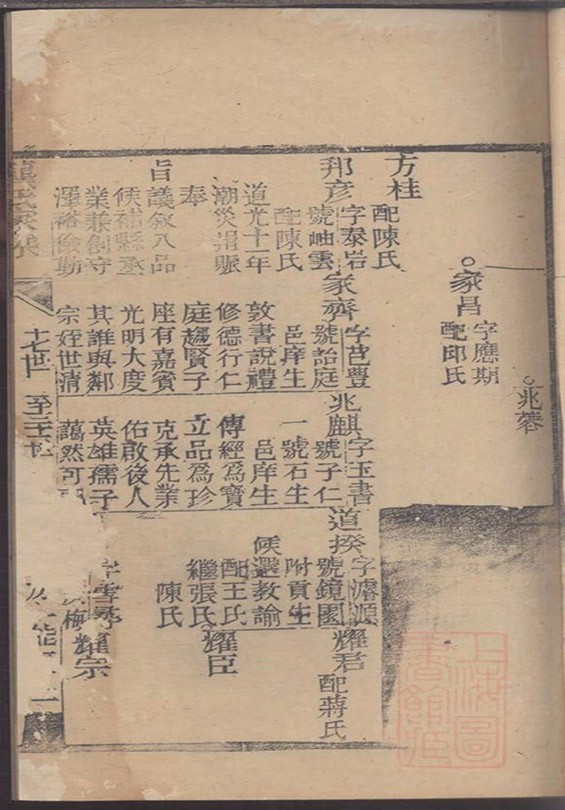 兆蓉
家昌
字應期
配邱氏
方桂
配陳氏
邦彥
字泰岩
號岫雲
配陳氏
道光十一年
潮災捐賑
奉
旨議敘八品
候補縣丞
業兼創守
澤裕儉勤
家齊
字芑豐
號詒庭
邑庠生
敦書說禮
修德行仁
庭趨賢子
座有嘉賓
光明大度
其誰與鄰
宗姪世清
兆麒
字玉書
號子仁
一號石生
邑庠生
傳經為寶
立品為珍
克承先業
佑啟後人
英雄孺子
藹然可
道揆
字濬源
號鏡園
附貢生
候選教諭
配王氏
繼張氏
陳氏
耀君
配蔣氏
耀臣
耀宗
雪
梅
十七世
至二十
上海圖
書館藏